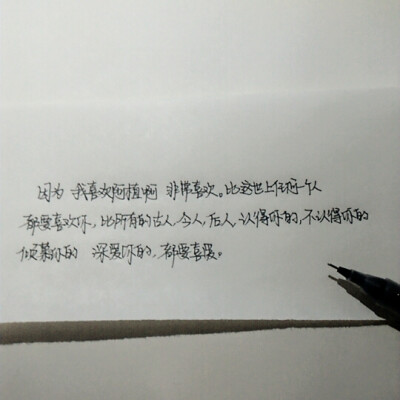 因为 我喜欢阿植啊 非常喜欢。比这世上任何一个人
都要喜欢你，比所有的古人，今人，后人，认得你的，不认得你的
倾慕你的 深爱你的，都要喜爱。